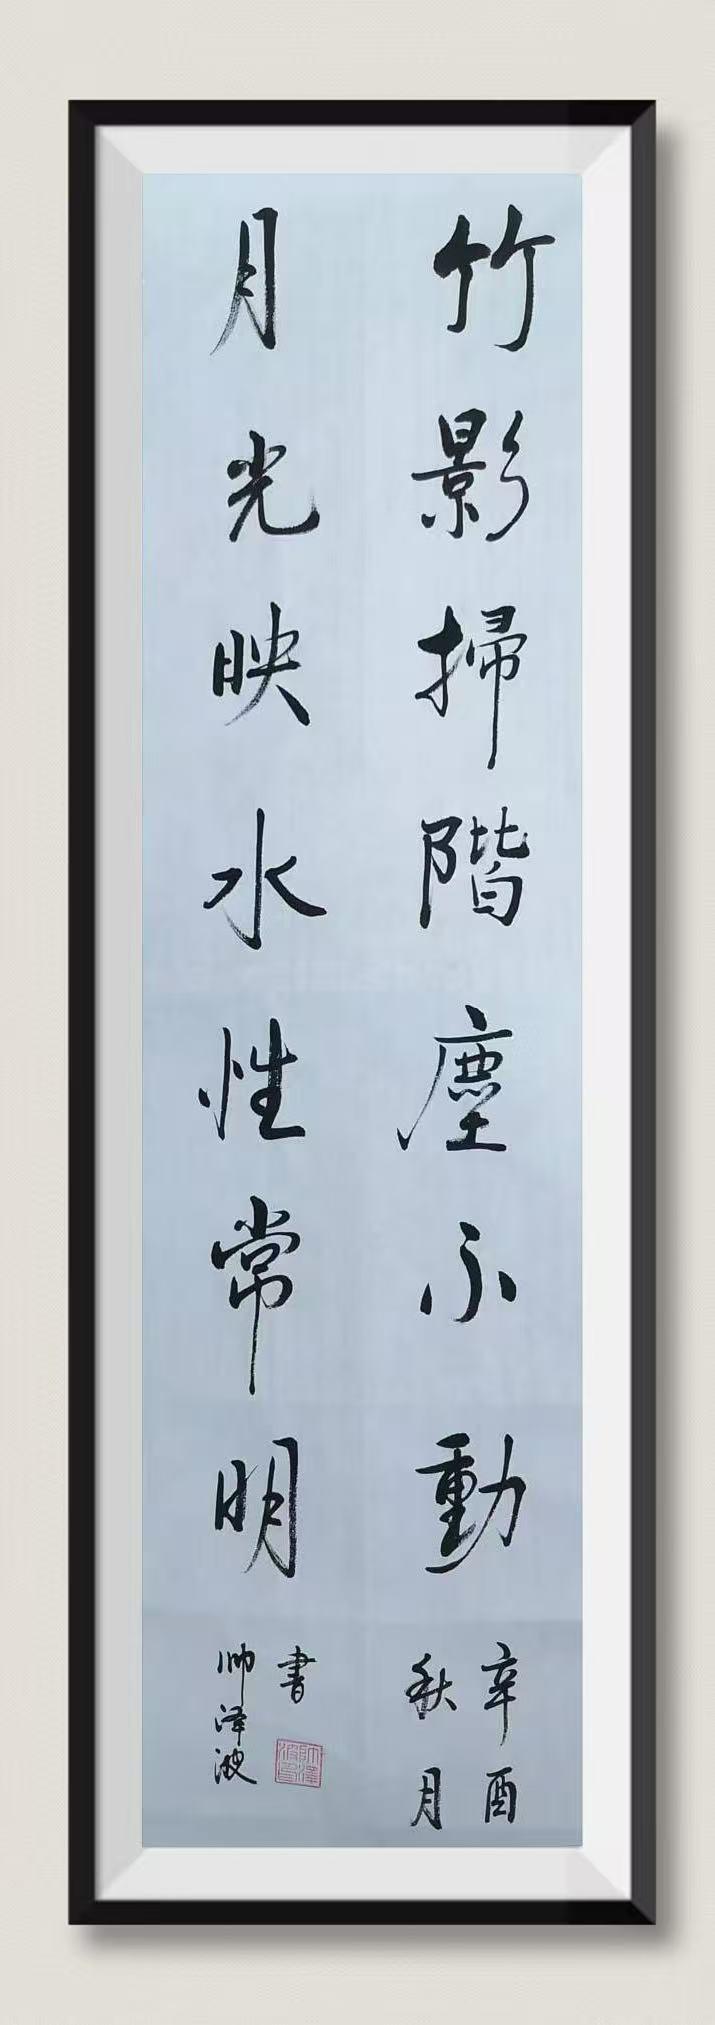 竹影掃階塵不動
辛酉
秋月
月光映水性常明
書
帅泽波
帥澤波印